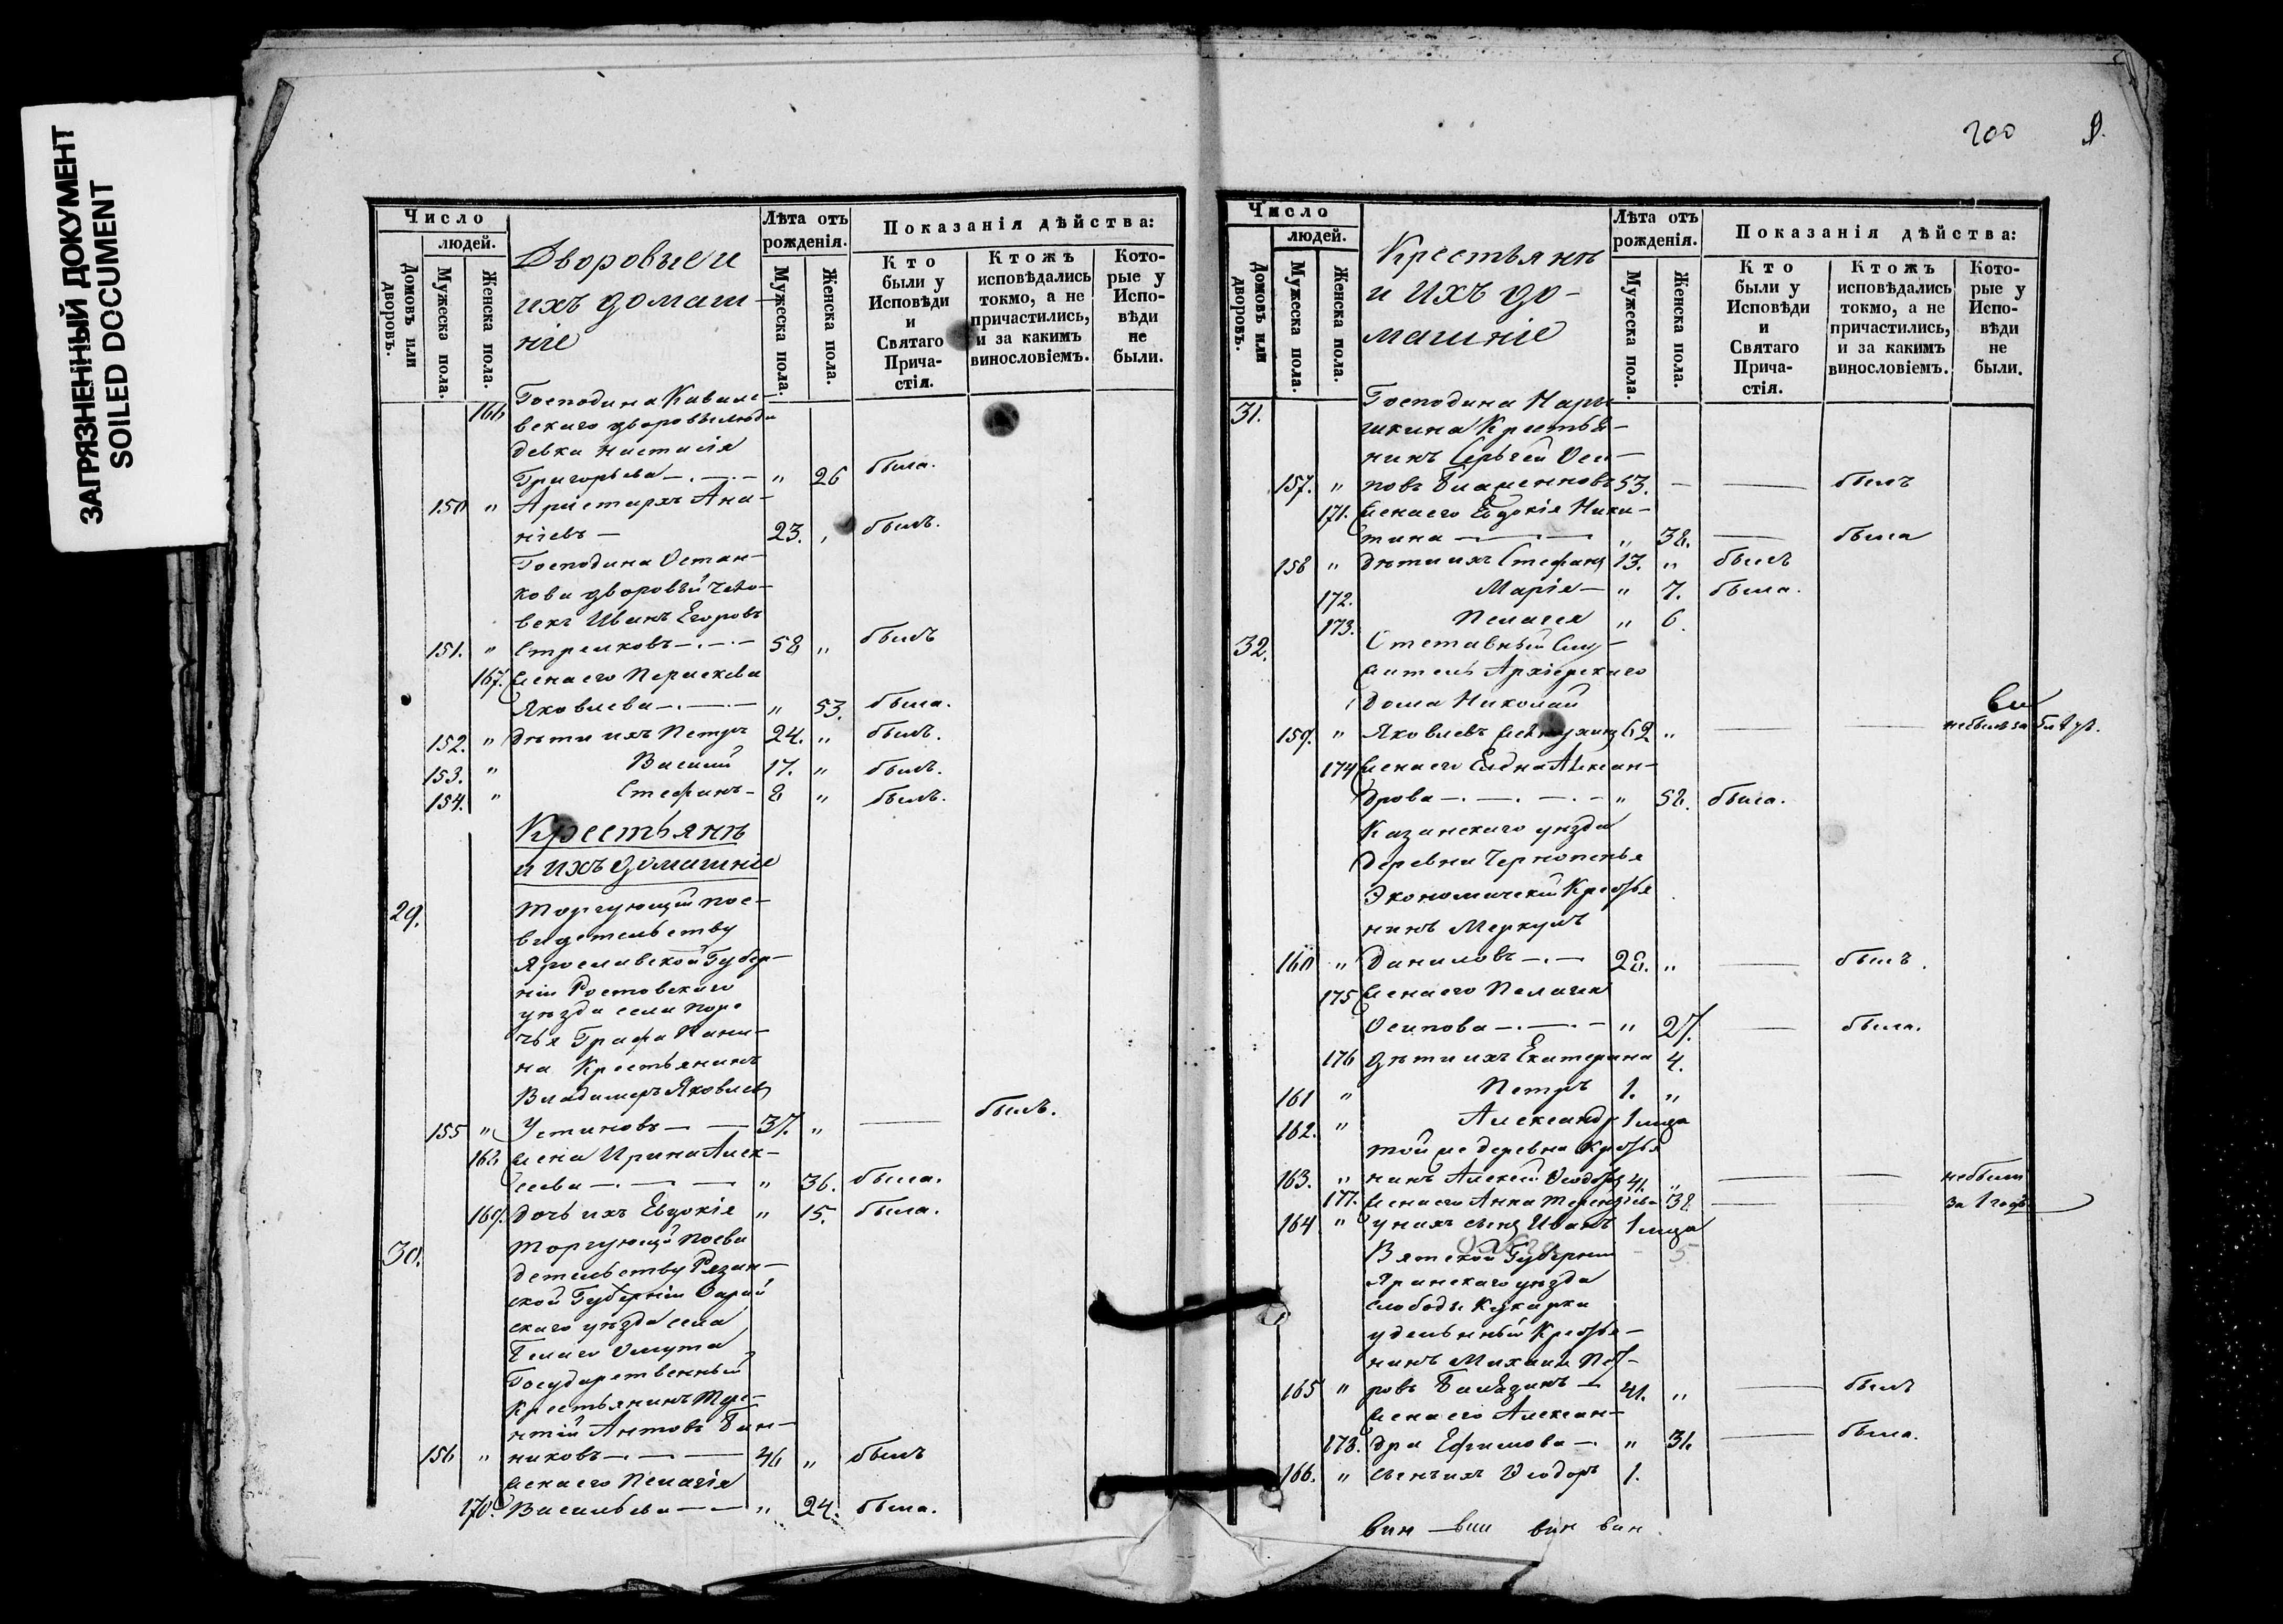 ЗАГРЯЗНЕННЫЙ ДОКУМЕНТ
SOILED DOCUMENT
200
Число
людей.
Домовъ или дворовъ.
Мужеска пола.
Женска пола.
Дворовые и
ихъ домаш-
ніе
Лѣта отъ рожденія.
Мужеска пола.
Женска пола.
Показанія дѣйства:
Кто были у Исповѣди и Святаго Причастія.
Ктожъ исповѣдались токмо, а не причастились, и за какимъ винословіемъ.
Которые у Исповѣди не были.
Господина
166 дворовые люди
девка Настасія
Григорьева " 26 была.
150 " Аристархъ Ана-
ніевъ 23. былъ.
Господина Остан-
кова дворовый чело-
векъ Иванъ Егоровъ
151. " Стрелковъ 58 " былъ
167. Жена его Параскева
Яковлева " 53. была.
152. " Дѣти ихъ Петръ 24. " былъ.
153. " Василій 17. " былъ.
154. " Стефанъ 8 " былъ.
Крестьянѣ
и ихъ домашніе
29. Торгующій по с-
видетельству
Ярославской Губер-
ніи Ростовскаго
уѣзда села Поре
чья Графа Пани-
на Крестьянинъ
Владимеръ Яковлев
155 " Устиновъ 37. " былъ.
168 Жена Ирина Алек-
сеева " 36. была.
169. Дочь ихъ Евдокія " 15. была.
30. Торгующій по сви
детельству Рязан-
ской Губерніи Зарай
скаго уѣзда села
Белаго Омута
Государственный
Крестьянинъ Тере-
нтій Антовъ Бан-
156 " никовъ 46 " былъ
Жена его Пелагія
170. Васильева " 24. была.
Число
людей.
Домовъ или дворовъ.
Мужеска пола.
Женска пола.
Крестьянѣ
и ихъ до-
машніе
Лѣта отъ рожденія.
Мужеска пола.
Женска пола.
Показанія дѣйства:
Кто были у Исповѣди и Святаго Причастія.
Ктожъ исповѣдались токмо, а не причастились, и за какимъ винословіемъ.
Которые у Исповѣди не были.
31. Господина Нары
шкина Крестья-
нинъ Сергей Оси-
157. " повъ 53. былъ
171. Жена его Евдокія Ники-
тина " 38. была
158 " Дѣти ихъ Стефанъ 13. " былъ
172. Марія " 7. была.
173. Пелагея " 6.
32. Отставный Слу-
житель Архіерскаго
Дома Николай
159. " Яковлевъ 62 "
174 Жена его Елена Алексан-
дрова " 58. была.
Казанскаго уѣзда
Деревни Чернопенья
Экономическій Крестья
нинъ Меркулъ
160 " Даниловъ 28. " былъ.
175 Жена его Пелагея
Осипова " 27. была.
176 Дѣти ихъ Екатерина 4.
161 " Петръ 1. "
162. " Александръ 1 мца
той же деревни Крестья
163. " нинъ Алексей Ѳеодоръ 41. " небыли
177. Жена его Анна Терентьева 38 за 1 годъ
164 " у нихъ сынъ Иванъ 1 мца
Вятской Губерніи 5
Яранскаго уѣзда
слободы Кукарки
удельнный Крестья-
нинъ Михаилъ Пет-
165 " ровъ 41. " былъ
Жена его Алексан-
178. дра Ефимова " 31. была.
166. " сынъ ихъ Ѳеодоръ 1.